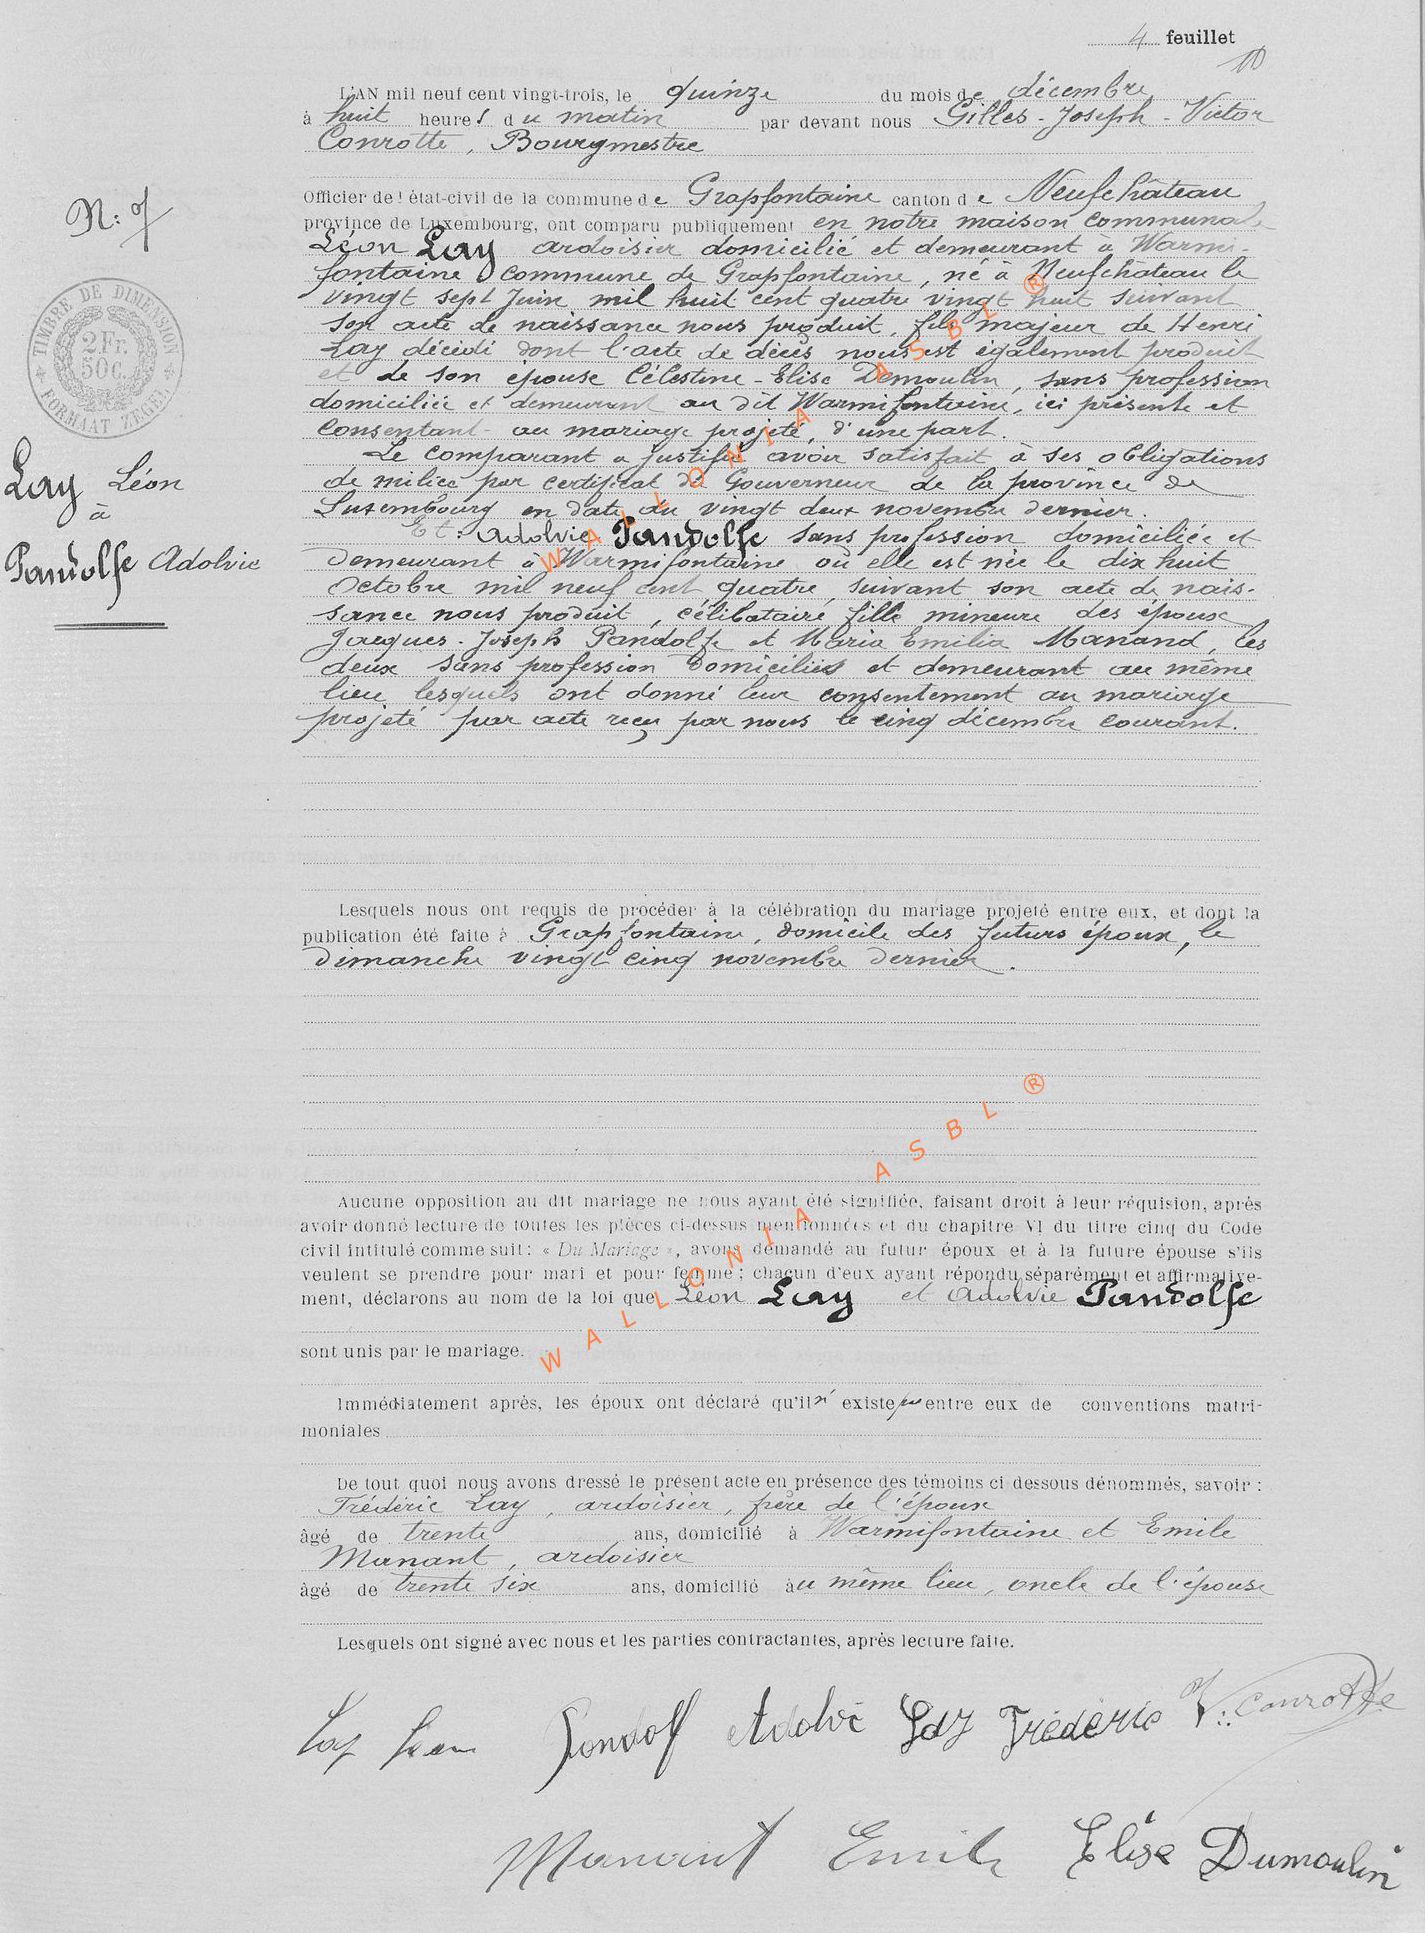 4 feuillet
10
L'AN mil neuf cent vingt-trois, le quinze du mois de décembre
à huit heures du matin par devant nous Gilles-Joseph-Victor
Conrotte, Bourgmestre
Officier de l'état-civil de la commune de Grapfontaine canton de Neufchâteau
province de Luxembourg, ont comparu publiquement en notre maison communale
N:
Léon Lay ardoisier domicilié et demeurant à Warmi-
fontaine commune de Grapfontaine, né à Neufchâteau le
vingt sept Juin mil huit cent quatre vingt huit suivant
son acte de naissance nous produit, fils majeur de Henri
Lay décédé dont l'acte de décès nous est également produit
et de son épouse Célestine-Elise Demoulin, sans profession
domiciliée et demeurant au dit Warmifontaine, ici présente et
consentant au mariage projeté, d'une part.
TIMBRE DE DIMENSION
2 Fr.
50 C.
FORMAAT ZEGEL
Le comparant a justifié avoir satisfait à ses obligations
de milice par certificat du Gouverneur de la province de
Luxembourg en date du vingt deux novembre dernier.
Lay Léon
à
Pandolfe Adolvie
Et: Adolvie Pandolfe sans profession domiciliée et
demeurant à Warmifontaine où elle est née le dix huit
Octobre mil neuf cent quatre, suivant son acte de nais-
sance nous produit, célibataire fille mineure des époux
Jacques-Joseph Pandolfe et Maria Emilia Manand, les
deux sans profession domiciliés et demeurant au même
lieu lesquels ont donné leur consentement au mariage
projeté par acte reçu par nous le cinq décembre courant.
Lesquels nous ont requis de procéder à la célébration du mariage projeté entre eux, et dont la
publication été faite à Grapfontaine, domicile des futurs époux, le
dimanche vingt cinq novembre dernier.
Aucune opposition au dit mariage ne nous ayant été signifiée, faisant droit à leur réquision, après
avoir donné lecture de toutes les pièces ci-dessus mentionnées et du chapitre VI du titre cinq du Code
civil intitulé comme suit: « Du Mariage », avons demandé au futur époux et à la future épouse s'ils
veulent se prendre pour mari et pour femme; chacun d'eux ayant répondu séparément et affirmative-
ment, déclarons au nom de la loi que Léon Lay et Adolvie Pandolfe
sont unis par le mariage.
Immédiatement après, les époux ont déclaré qu'il n'existe pas entre eux de conventions matri-
moniales
De tout quoi nous avons dressé le présent acte en présence des témoins ci dessous dénommés, savoir:
Frédéric Lay, ardoisier, frère de l'époux
âgé de trente ans, domicilié à Warmifontaine et Emile
Manant, ardoisier
âgé de trente six ans, domicilié au même lieu, oncle de l'épouse
Lesquels ont signé avec nous et les parties contractantes, après lecture faite.
Lay Léon Pondolf Adolvi Lay Frédéric V: Conrotte
Manant Emile Elise Dumoulin
WALLONIA ASBL ®
WALLONIA ASBL ®